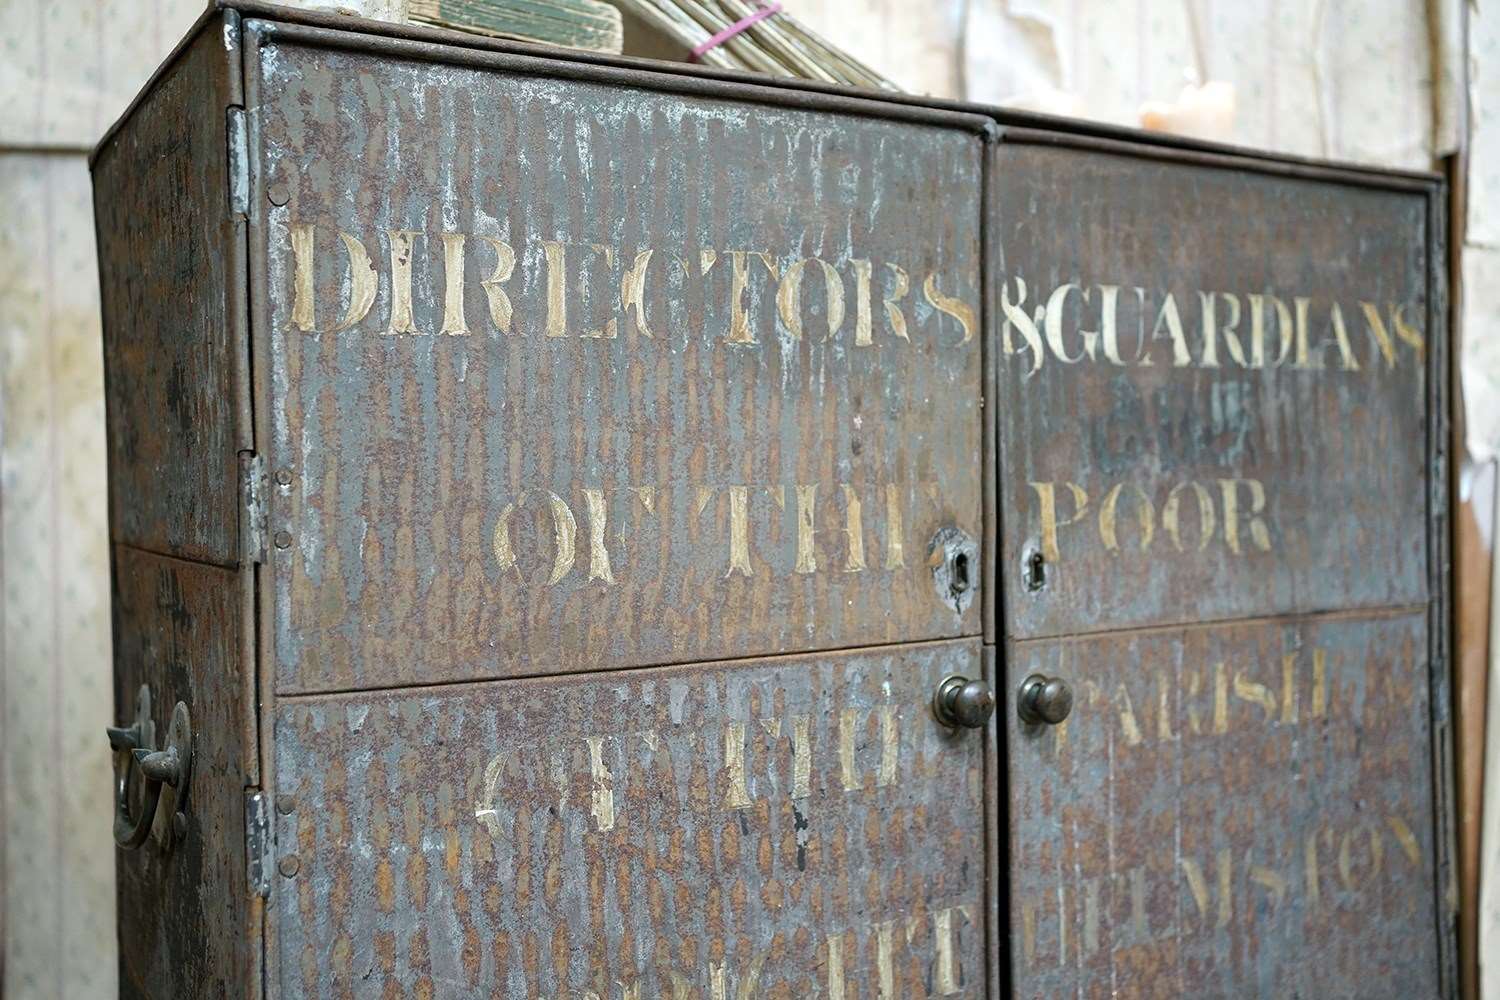 DIRECTORS & GUARDIANS
OF THE POOR
OF THE PARISH
HELMSTON